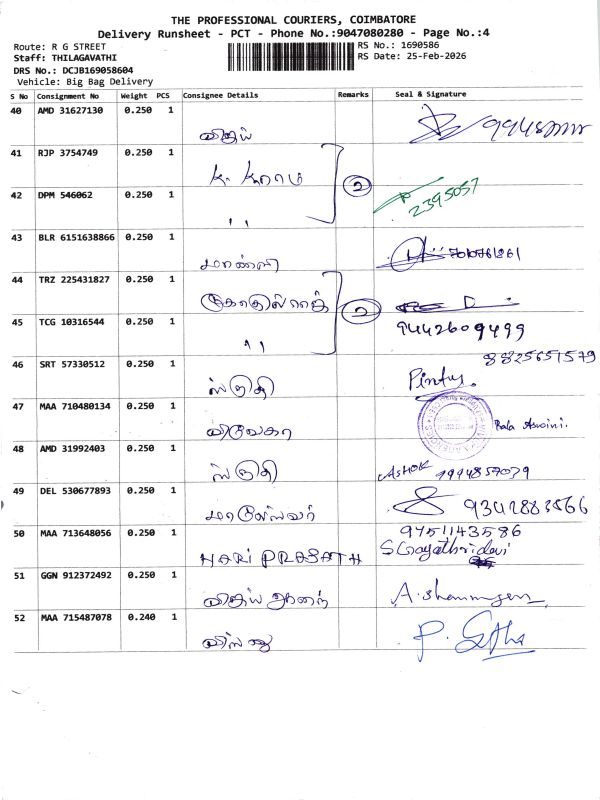 THE PROFESSIONAL COURIERS, COIMBATORE
Delivery Runsheet - PCT - Phone No.:9047080280 - Page No.:4
Route: R G STREET
Staff: THILAGAVATHI
DRS No.: DCJB169058604
Vehicle: Big Bag Delivery
RS No.: 1690586
RS Date: 25-Feb-2026
S No Consignment No Weight PCS Consignee Details Remarks Seal & Signature
40 AMD 31627130 0.250 1 விஜய்
41 RJP 3754749 0.250 1 K.
42 DPM 546062 0.250 1 " 2 2395057
43 BLR 6151638866 0.250 1
44 TRZ 225431827 0.250 1
45 TCG 10316544 0.250 1 " 2 9442609499
46 SRT 57330512 0.250 1 ஸ்ருதி 8825651579 Pintu.
47 MAA 710480134 0.250 1 Bala Aswini.
48 AMD 31992403 0.250 1 ஸ்ருதி ASHOK 9994857039
49 DEL 530677893 0.250 1 9342883566
50 MAA 713648056 0.250 1 HARI PRASATH 9751143586 S Gayathridevi
51 GGN 912372492 0.250 1 விஜய் A. Shanmugam
52 MAA 715487078 0.240 1 P. Geetha